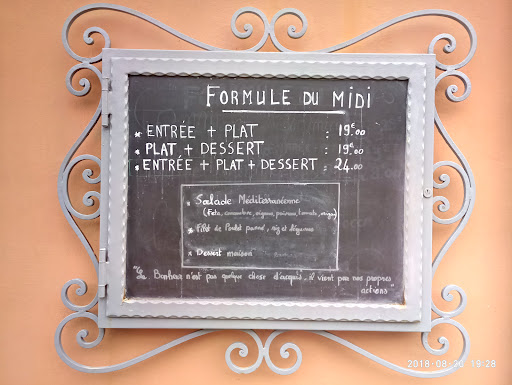 FORMULE DU MIDI
* ENTRÉE + PLAT : 19€.00
* PLAT + DESSERT : 19€.00
* ENTRÉE + PLAT + DESSERT : 24.00
* Salade Méditerranéenne
(Feta, concombre, oignons, poivrons, tomate,
* Filet de Poulet pané, riz et légumes
* Dessert maison
"Le Bonheur n'est pas quelque chose d'acquis, il vient par nos propres
actions"
2018-08-26 19:28